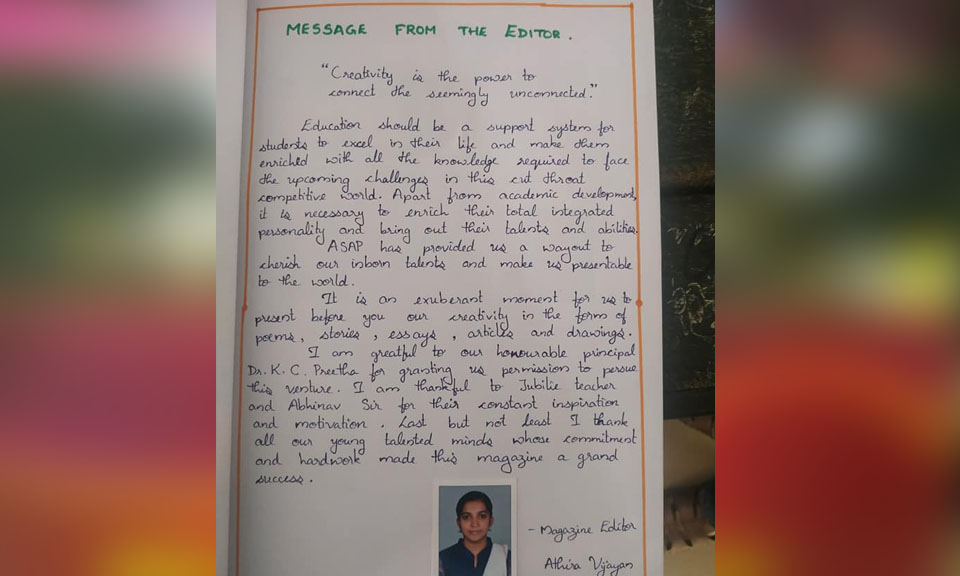 MESSAGE FROM THE EDITOR.
"Creativity is the power to
connect the seemingly unconnected."
Education should be a support system for
students to excel in their life and make them
enriched with all the knowledge required to face
the upcoming challenges in this cut throat
competitive world. Apart from academic development,
it is necessary to enrich their total integrated
personality and bring out their talents and abilities.
ASAP has provided us a wayout to
cherish our inborn talents and make us presentable
to the world.
It is an exuberant moment for us to
present before you our creativity in the form of
poems, stories, essays, articles and drawings.
I am greatful to our honourable principal
Dr. K. C. Preetha for granting us permission to persue
this venture. I am thankful to Jubilie teacher
and Abhinav Sir for their constant inspiration
and motivation. Last but not least I thank
all our young talented minds whose commitment
and hardwork made this magazine a grand
success.
- Magazine Editor
Athira Vijayan